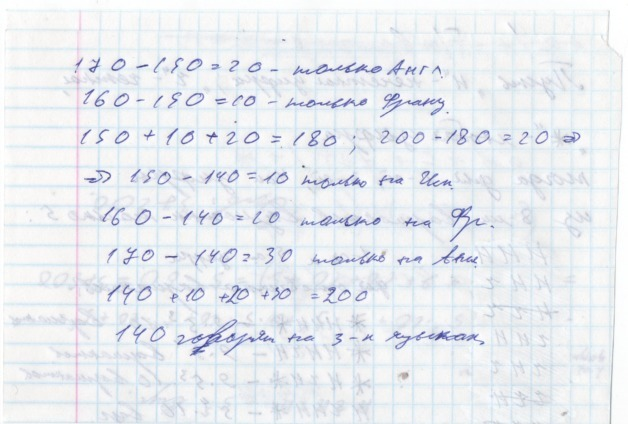 170 - 150 = 20 - только Англ.
160 - 150 = 10 - только Франц.
150 + 10 + 20 = 180 ; 200 - 180 = 20 ⇒
⇒ 150 - 140 = 10 только на Исп.
160 - 140 = 20 только на Фр.
170 - 140 = 30 только на Анг.
140 + 10 + 20 + 30 = 200
140 говорят на 3-х языках.